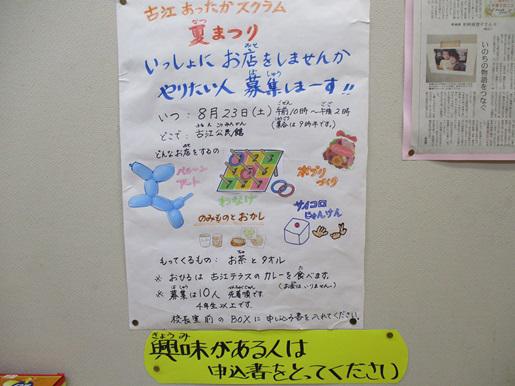 古江 あったか スクラム
夏まつり
なつ
いっしょに お店をしませんか
みせ
やりたい人 募集しまーす!!
ぼしゅう
いつ : 8月23日(土) 午前10時~午後2時
ごぜん ごご
(集合は9時半です。)
どこで : 古江公民館
どんなお店をするの
バルーンアート
わなげ
ポプリづくり
のみものとおかし
サイコロじゃんけん
もってくるもの : お茶とタオル
※ おひるは 古江テラスのカレーを食べます。
(お金はいりません)
※ 募集は10人 先着順です。
4年生以上です。
校長室前のBOXに申し込み書を入れてください
興味がある人は
きょうみ
申込書をとってください
いのちの物語をつなぐ